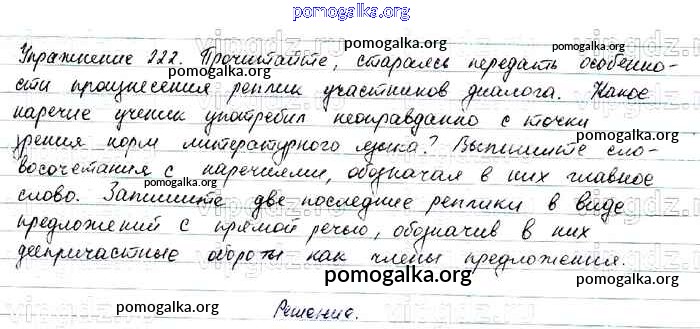 pomogalka.org
Упражнение 222. Прочитайте, стараясь передать особенно-
сти произнесения реплик участников диалога. Какое
наречие ученик употребил неоправданно с точки
зрения норм литературного языка? Выпишите сло-
восочетания с наречиями, обозначая в них главное
слово. Запишите две последние реплики в виде
предложений с прямой речью, обозначив в них
деепричастные обороты как члены предложения.
pomogalka.org
Решение.